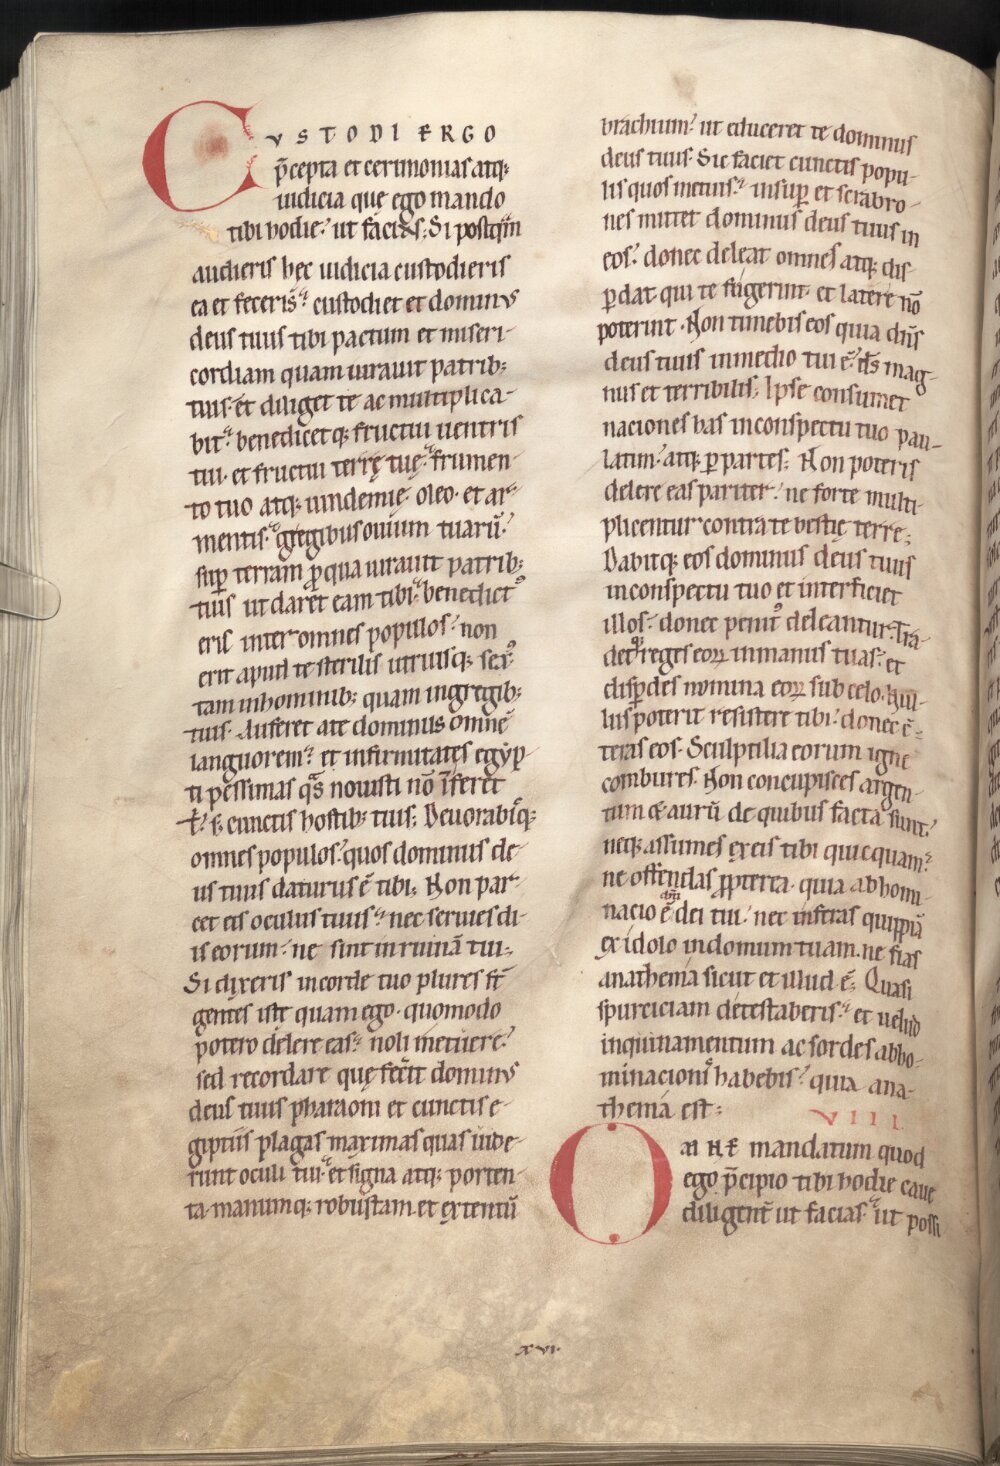 CVSTODI ERGO
p̄cepta et cerimonias atq;
iudicia que ego mando
tibi hodie: ut facias; Si postq̄m
audieris hęc iudicia custodieris
ea et feceris: custodiet et dominus
deus tuus tibi pactum et miseri-
cordiam quam iurauit patrib;
tuis. et diliget te ac multiplica-
bit: benedicetq; fructui uentris
tui. et fructui terrę tuę. frumen-
to tuo atq; uindemię. oleo. et ar-
mentis. gregibus ouium tuarū:
suꝑ terram ꝓ qua iurauit patrib;
tuis ut daret eam tibi. benedictꝰ
eris inter omnes popullos: non
erit apud te sterilis utriusq; sexꝰ.
tam in hominib; quam in gregib;
tuis. Auferet a te dominus omnē
languorem: et infirmitates egyp-
ti pessimas q̄s nouisti nō īferet
t̄: s; cunctis hostib; tuis; Deuorabisq;
omnes populos: quos dominus de-
us tuus daturus ē tibi; Non par-
cet eis oculus tuus: nec seruies di-
is eorum: ne sint in ruinā tui;
Si dixeris in corde tuo plures st̄
gentes istę quam ego. quomodo
potero delere eas: noli metuere:
sed recordare quę fecit dominus
deus tuus pharaoni et cunctis e-
giptiis plagas maximas quas uide-
runt oculi tui. et signa atq; porten-
ta. manumq; robustam. et extentū
brachium: ut educeret te dominus
deus tuus. Sic faciet cunctis popu-
lis quos metuis: insuꝑ et scrabro-
nes mittet dominus deus tuus in
eos: donec deleat omnes atq; dis-
ꝑdat qui te fugerint. et latere nō
poterint. Non timebis eos quia dn̄s
deus tuus in medio tui ē: ds̄ mag-
nus et terribilis; Ipse consumet
naciones has in conspectu tuo pau-
latim: atq; ꝑ partes; Non poteris
delere eas pariter: ne forte multi-
plicentur contra te bestię terre;
Dabitq; eos dominus deus tuus
in conspectu tuo et interficiet
illos: donec penitꝰ deleantur. Tra-
detq; reges eoꝝ in manus tuas: et
disꝑdes nomina eoꝝ sub celo. Nul-
lus poterit resistere tibi: donec cō-
teras eos. Sculptilia eorum igne
combures. Non concupisces argen-
tum & aurū de quibus facta sunt:
neq; assumes ex eis tibi quicquam:
ne offendas ꝓpterea. quia abhomi-
nacio ē dn̄i dei tui: nec inferas quippiā
ex idolo in domum tuam. ne fias
anathema sicut et illud ē; Quasi
spurciciam detestaberis: et uelud
inquinamentum ac sordes abbo-
minacioni habebis: quia ana-
thema est;
VIII.
OMNE mandatum quod
ego p̄cipio tibi hodie caue
diligent̄ ut facias: ut possi
xvi.